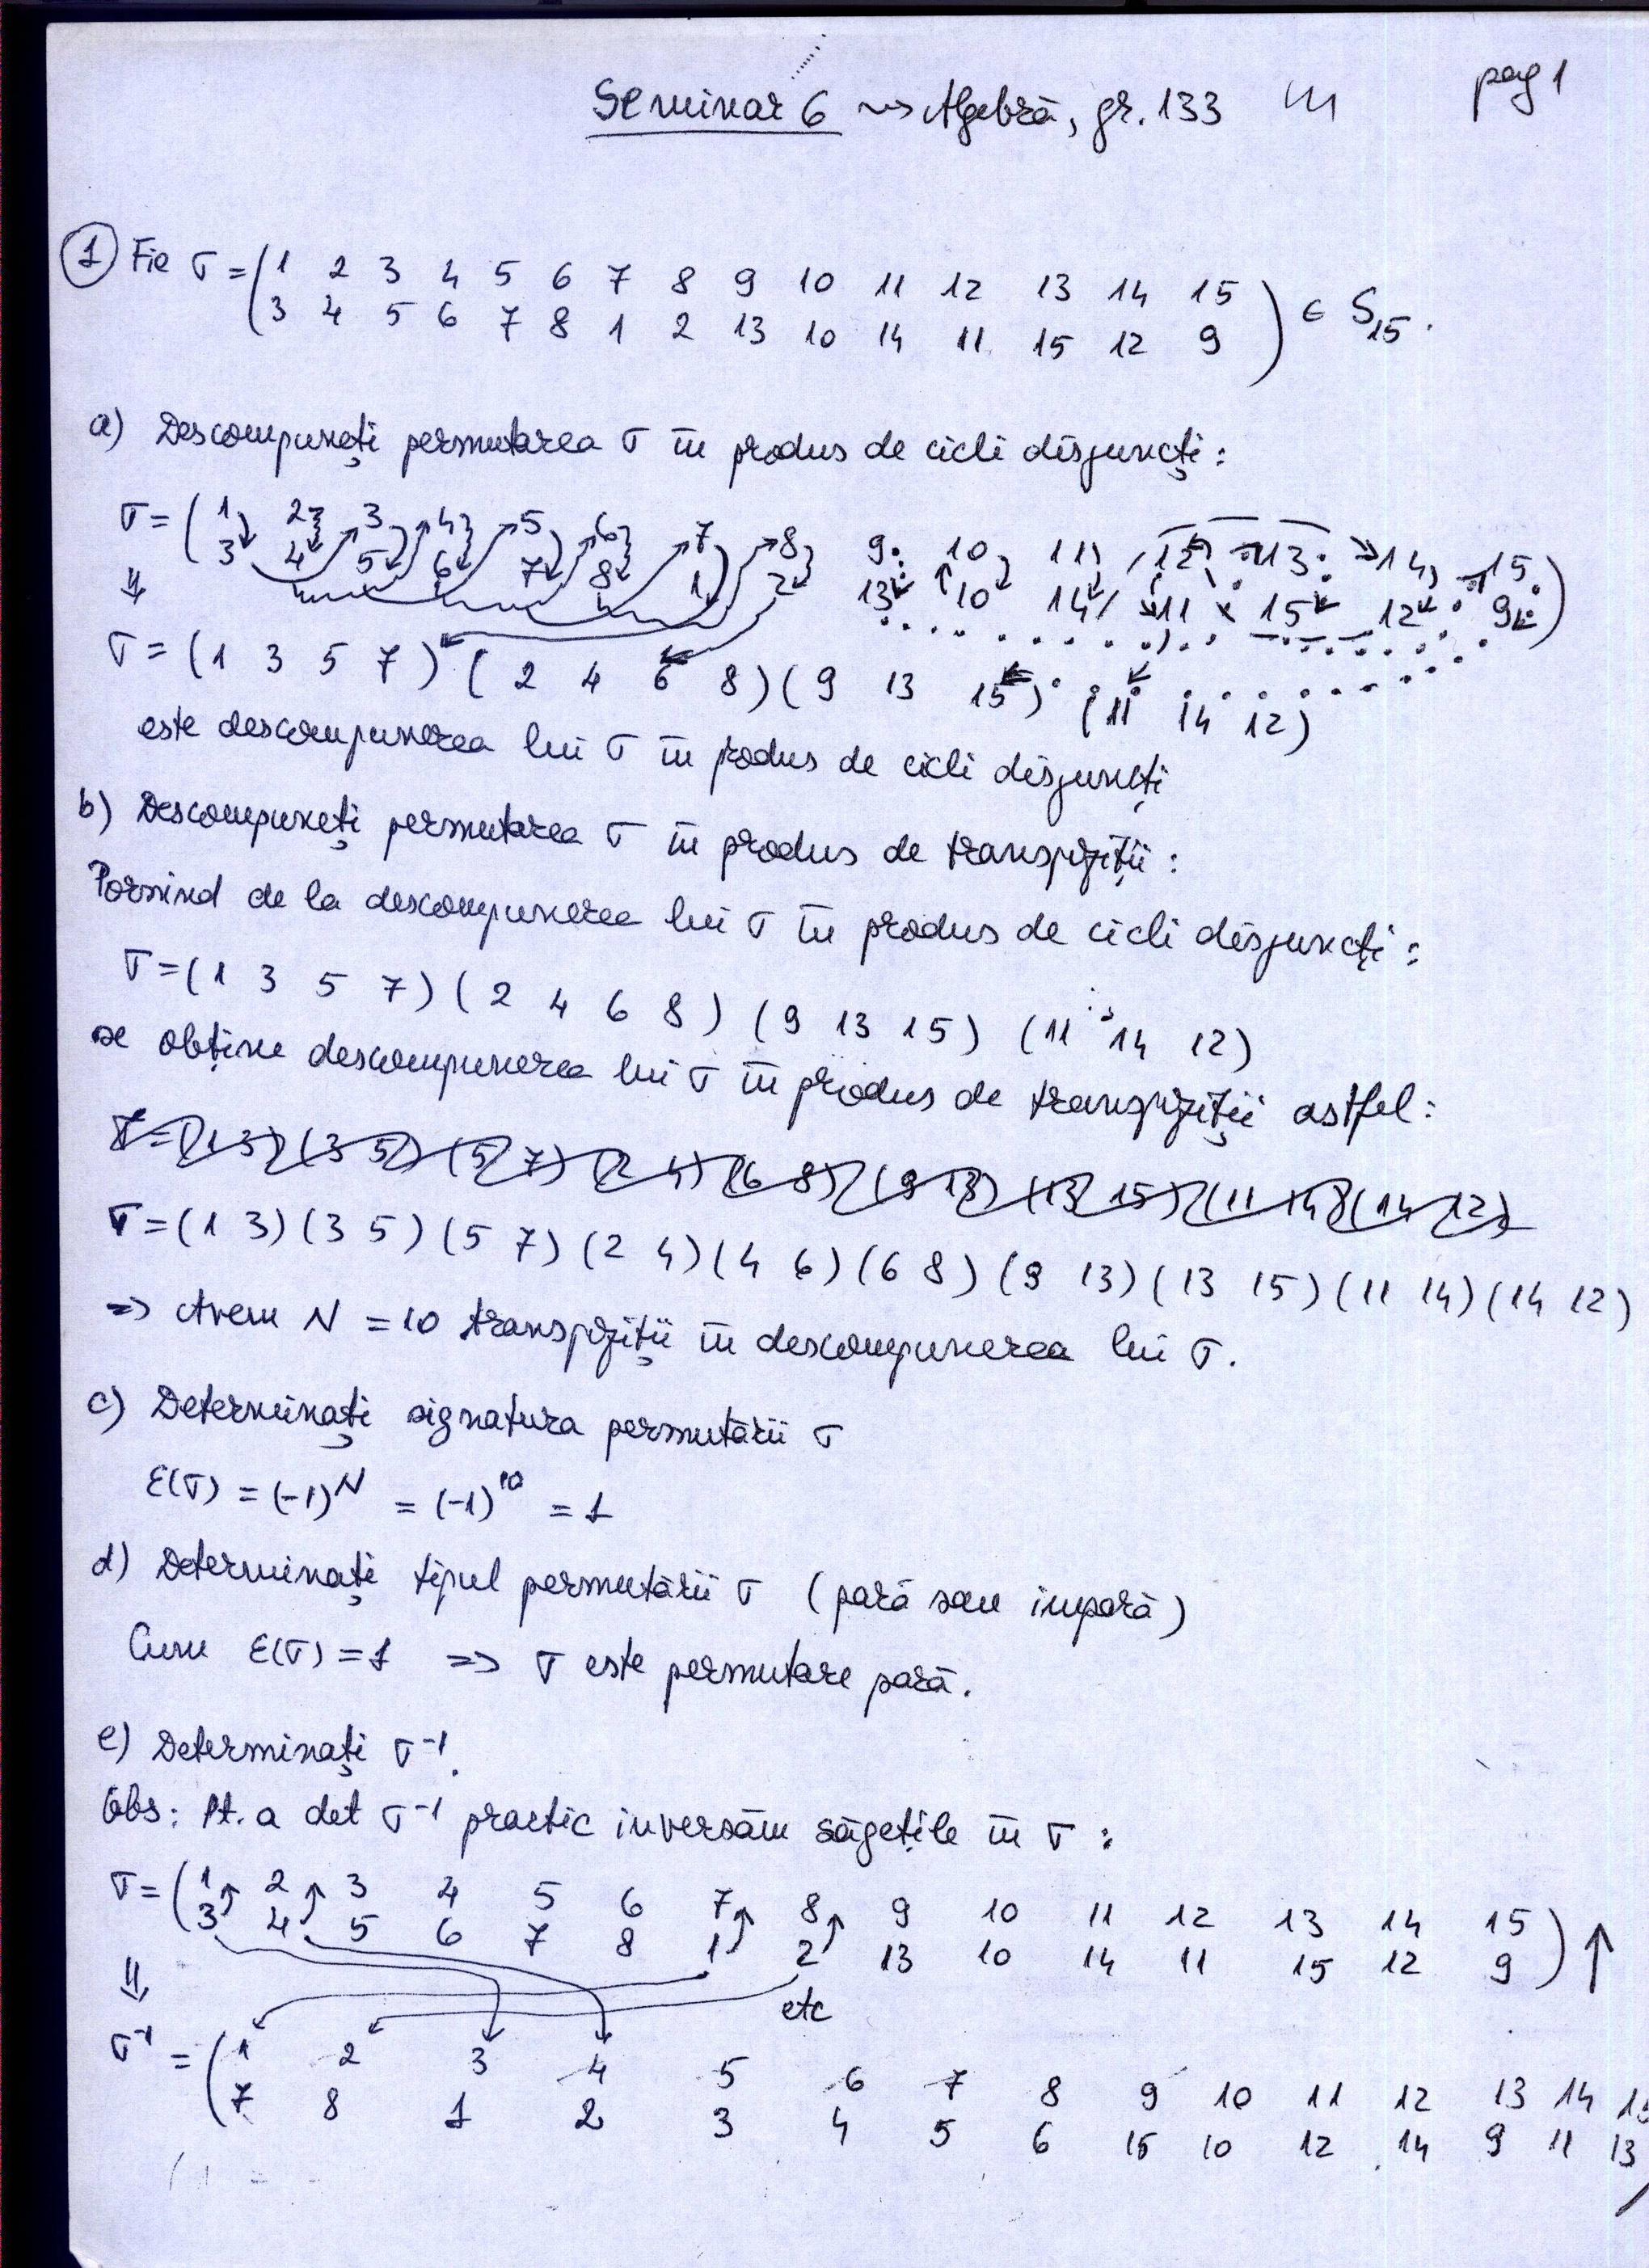 Seminar 6 ~> Algebră, gr. 133
pag 1
① Fie σ = (1 2 3 4 5 6 7 8 9 10 11 12 13 14 15
3 4 5 6 7 8 1 2 13 10 14 11 15 12 9) ∈ S15.
a) Descompuneți permutarea σ în produs de cicli disjuncți:
σ = (1 2 3 4 5 6 7 8 9 10 11 12 13 14 15
3 4 5 6 7 8 1 2 13 10 14 11 15 12 9)
⇓
σ = (1 3 5 7) (2 4 6 8) (9 13 15) (11 14 12)
este descompunerea lui σ în produs de cicli disjuncți
b) Descompuneți permutarea σ în produs de transpoziții:
Pornind de la descompunerea lui σ în produs de cicli disjuncți:
σ = (1 3 5 7) (2 4 6 8) (9 13 15) (11 14 12)
se obține descompunerea lui σ în produs de transpoziții astfel:
σ = (1 3) (3 5) (5 7) (2 4) (6 8) (9 13) (13 15) (11 14) (14 12)
σ = (1 3) (3 5) (5 7) (2 4) (4 6) (6 8) (9 13) (13 15) (11 14) (14 12)
=> Avem N = 10 transpoziții în descompunerea lui σ.
c) Determinați signatura permutării σ
ε(σ) = (-1)^N = (-1)^10 = 1
d) Determinați tipul permutării σ (pară sau impară)
Cum ε(σ) = 1 => σ este permutare pară.
e) Determinați σ^-1.
Obs: Pt. a det σ^-1 practic inversăm săgețile în σ:
σ = (1 2 3 4 5 6 7 8 9 10 11 12 13 14 15
3 4 5 6 7 8 1 2 13 10 14 11 15 12 9) ↑
⇓
etc
σ^-1 = (1 2 3 4 5 6 7 8 9 10 11 12 13 14 15
7 8 1 2 3 4 5 6 15 10 12 14 9 11 13